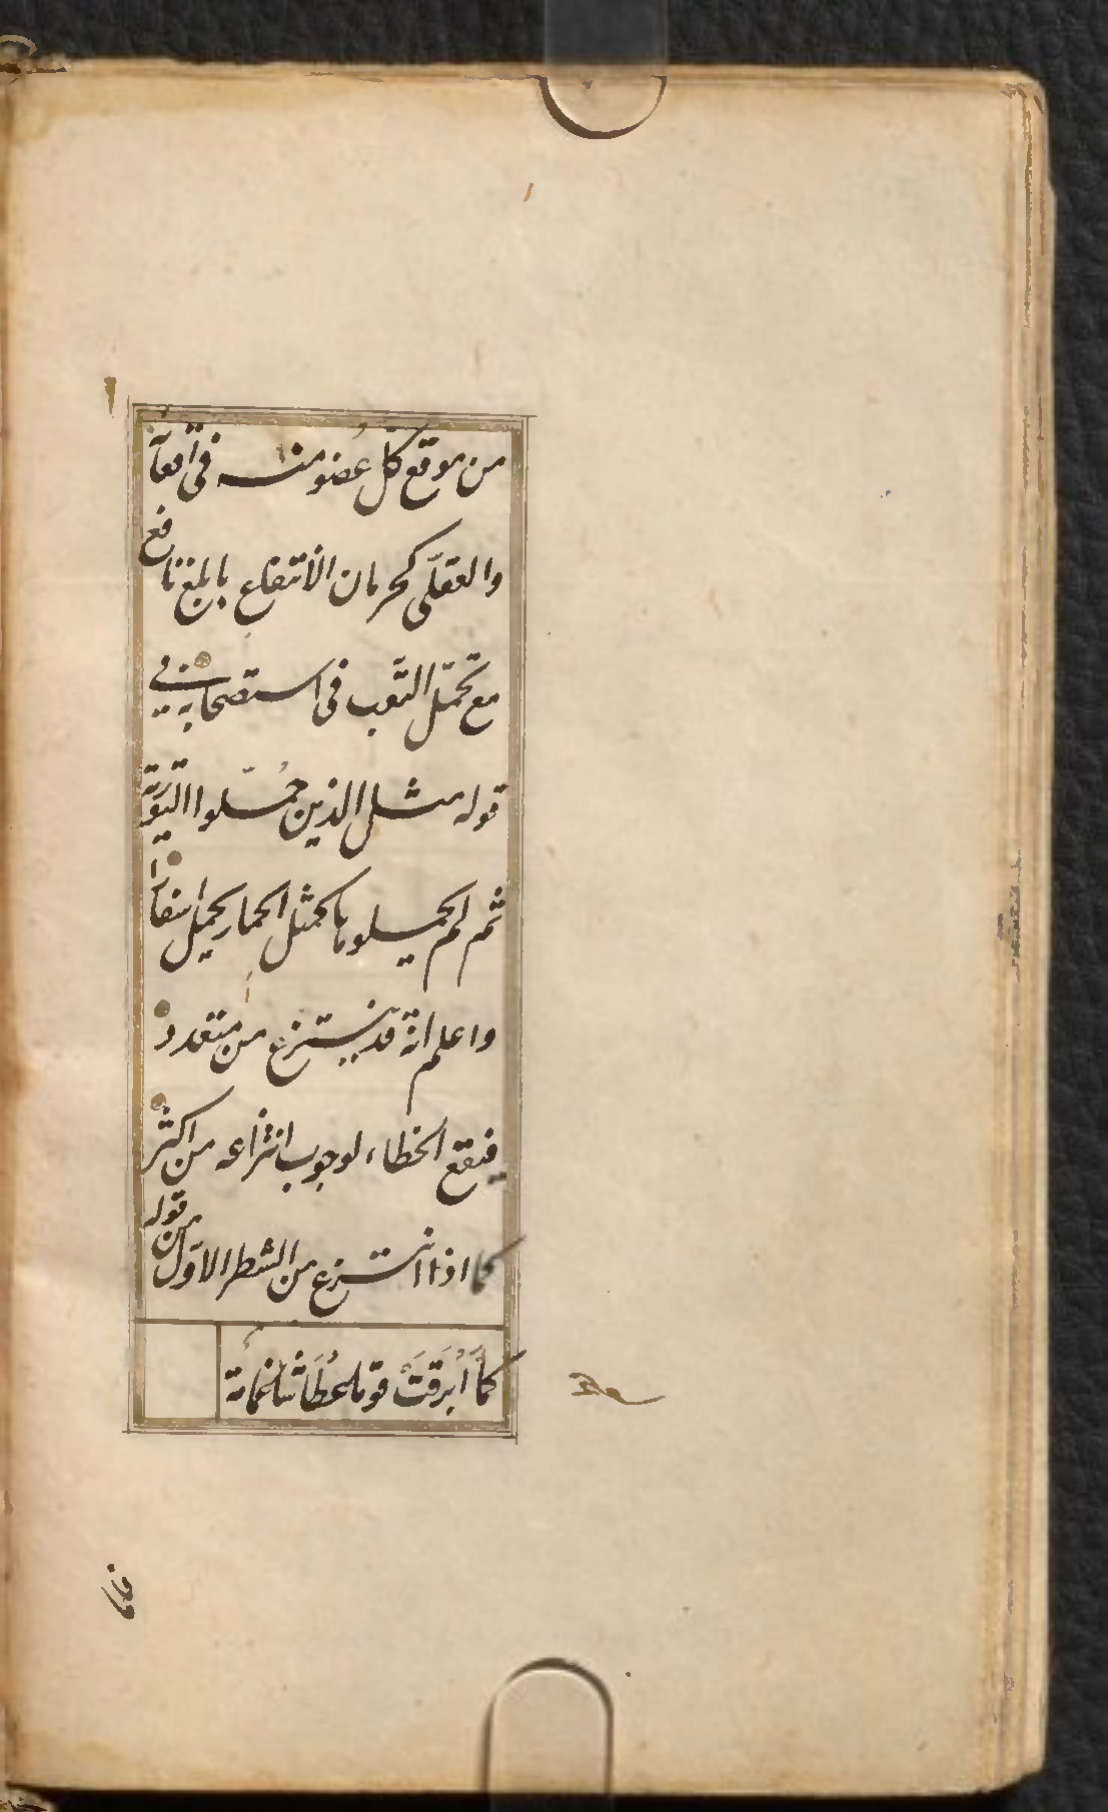 من موقع كلّ عُضو منه فى اقعآئه
والعقلّى كحرمان الانتفاع بابلغ نافع
مع تحمّل التّعب فى استصحابه فى
قوله مثل الذين حُمّلوا التّوریة
ثم لم يحملوها كمثل الحمار يحمل اسفارا
واعلم انّه قد ينتزع من متعدد
فيقع الخطاء لوجوب انتزاعه من اكثر
كما اذا انتزع من الشطر الاوّل من قوله
كمَا اَبْرَقَتْ قوما عُطَاشا غمامة